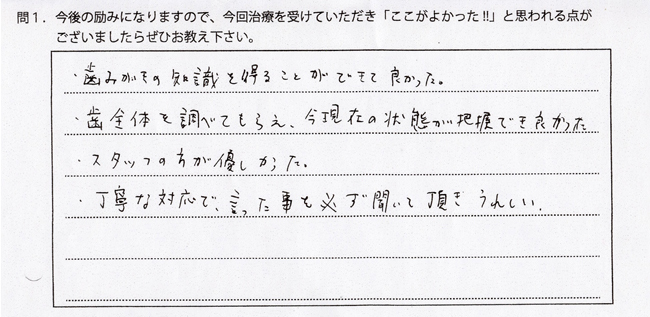 問1．今後の励みになりますので、今回治療を受けていただき「ここがよかった!!」と思われる点が
ございましたらぜひお教え下さい。
・歯みがきの知識を得ることができて良かった。
・歯全体を調べてもらえ、今現在の状態が把握でき良かった
・スタッフの方が優しかった。
・丁寧な対応で、言った事を必ず聞いて頂きうれしい.